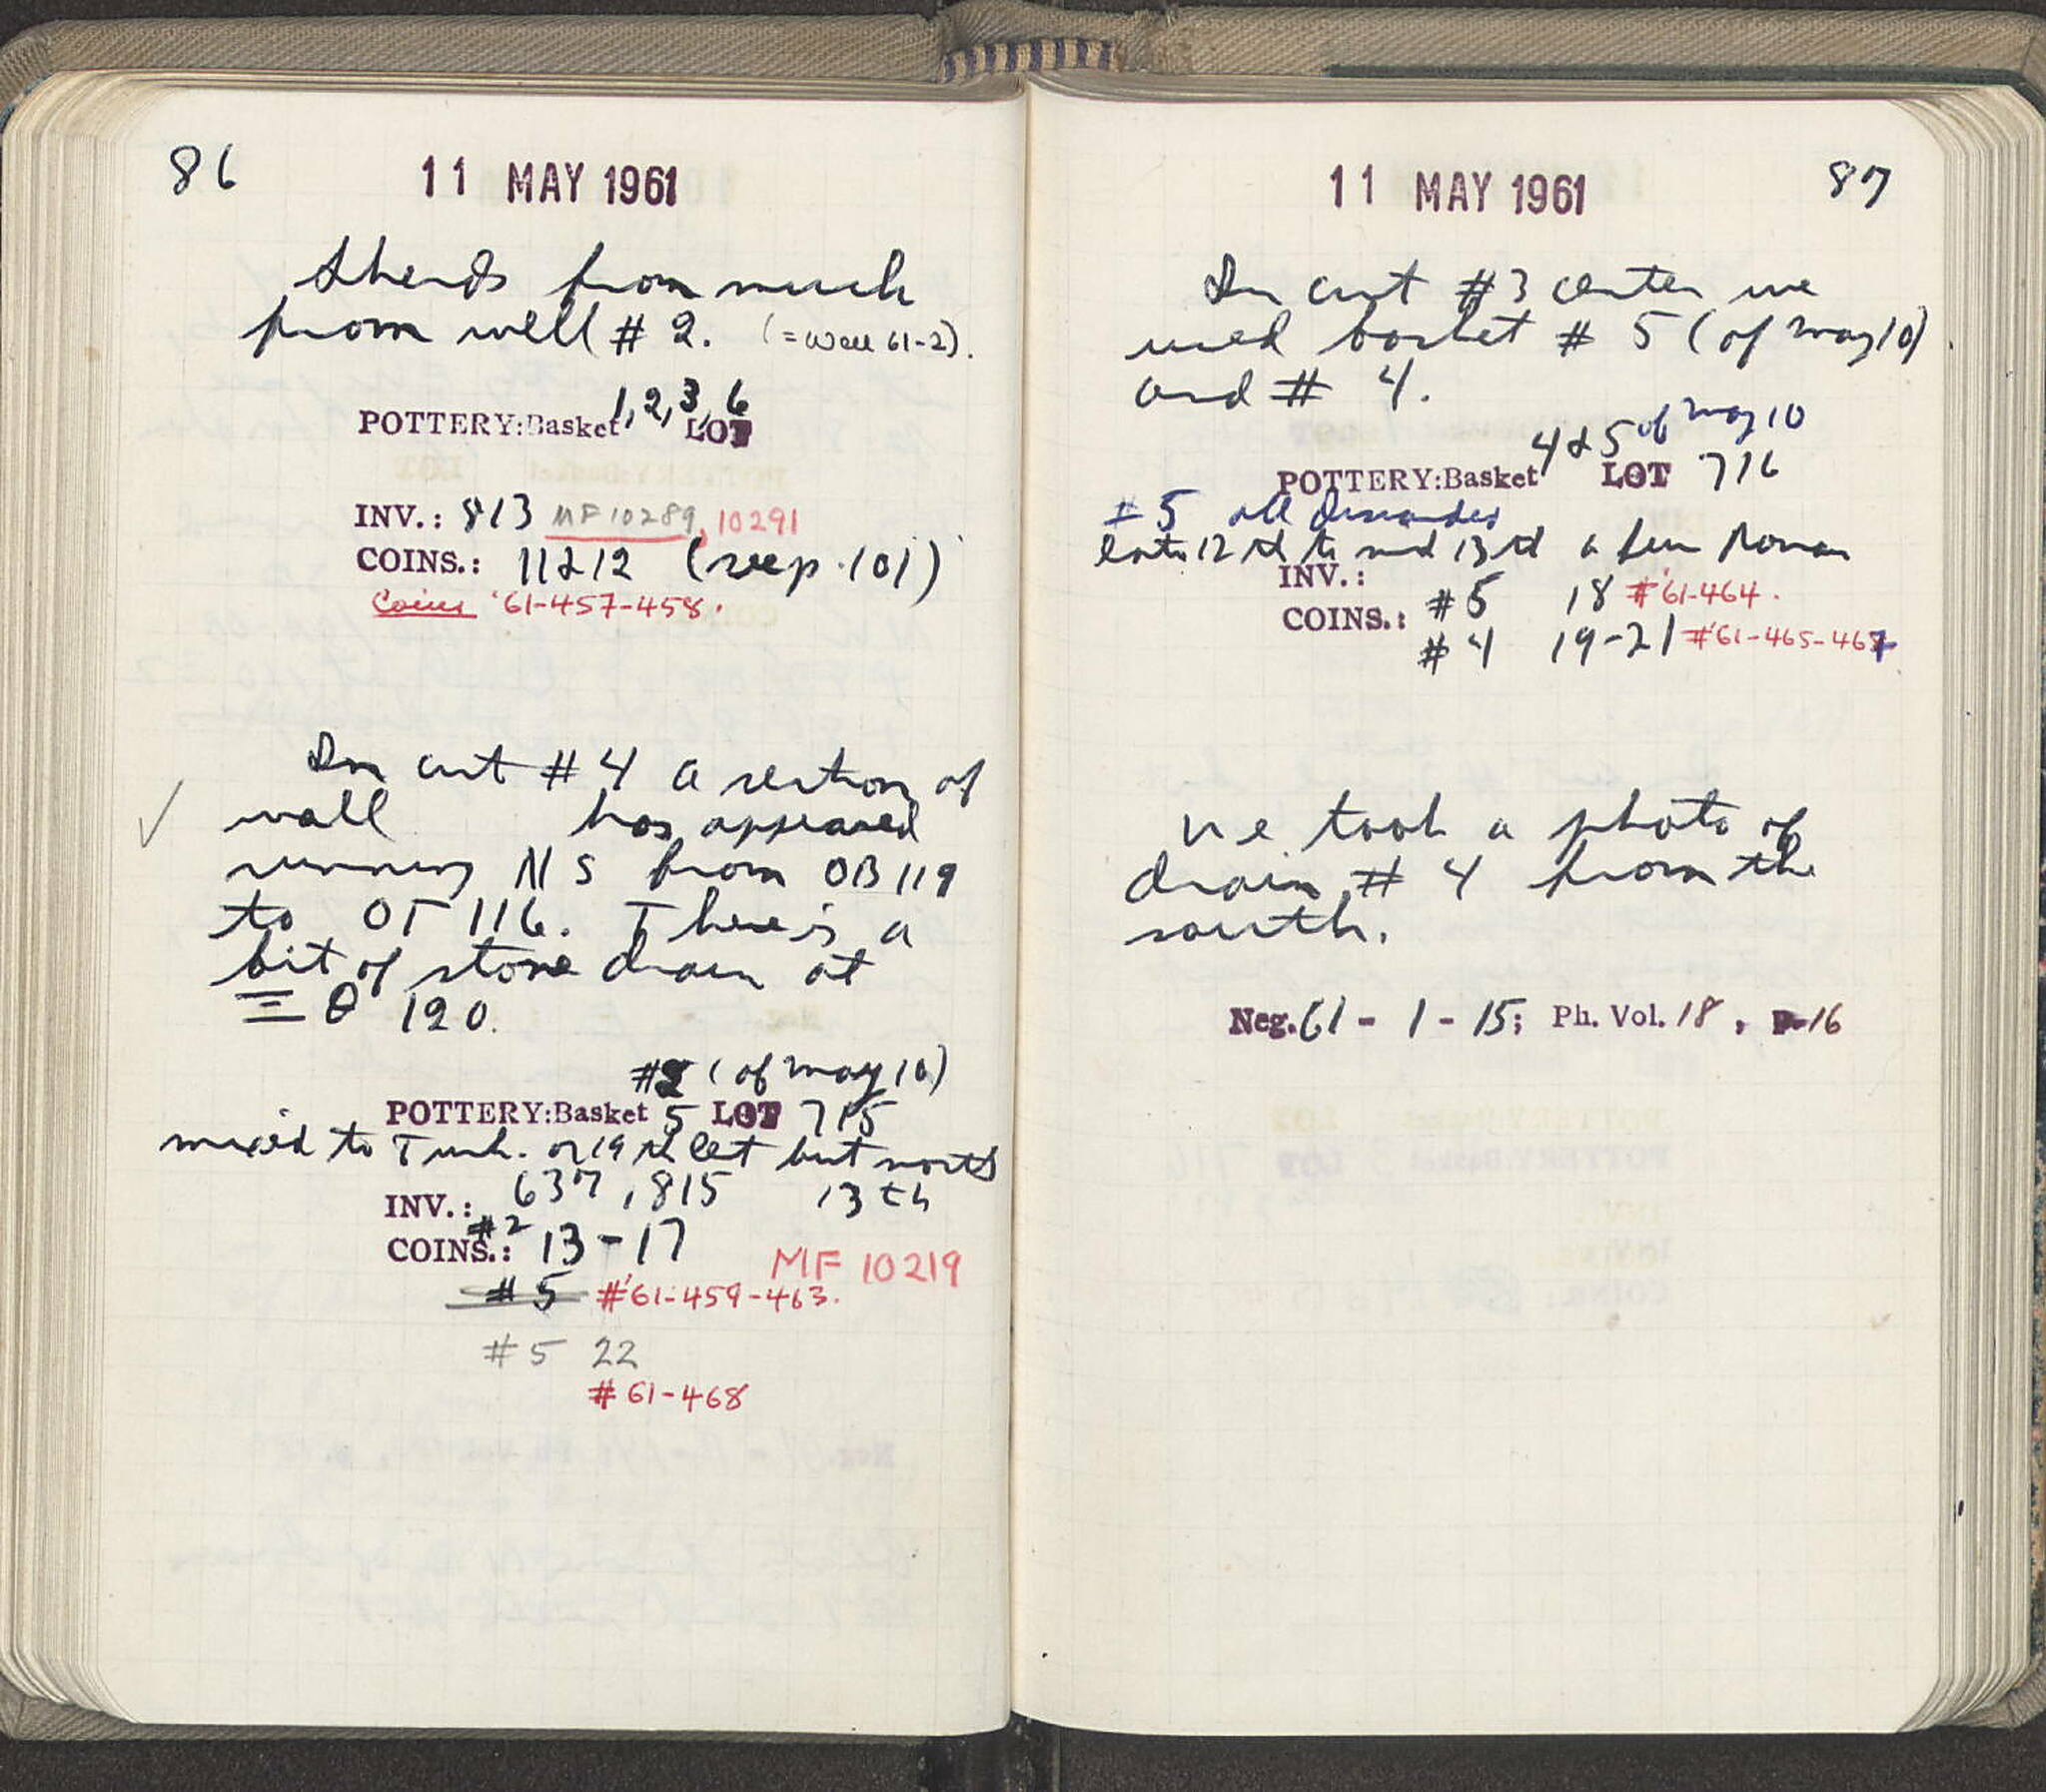 86
11 MAY 1961
Sherds from much
from well # 2. (= Well 61-2).
1, 2, 3, 6
POTTERY: Basket LOT
INV.: 813 MF 10289, 10291
COINS.: 11 & 12 (see p. 101)
Coins '61-457-458.
In cut #4 a section of
wall has appeared
running NS from OB 119
to OΓ 116. There is a
bit of stone drain at
Ξ Θ 120.
#2 (of May 10)
POTTERY: Basket 5 LOT 715
mixed to Turk. or 19th cet but mostly
13th
INV.: 637, 815
COINS.: #2 13-17
MF 10219
#5 #'61-459-463.
#5 22
# 61-468
11 MAY 1961
87
In cut #3 center we
used basket # 5 (of May 10)
and # 4.
4 & 5 of May 10
POTTERY: Basket LOT 716
#5 all discarded
late 12th to mid 13th a few Roman
INV.:
COINS.: #5 18 #'61-464.
#4 19-21 #'61-465-467
We took a photo of
drain # 4 from the
south.
Neg. 61 - 1 - 15; Ph. Vol. 18, p. 16